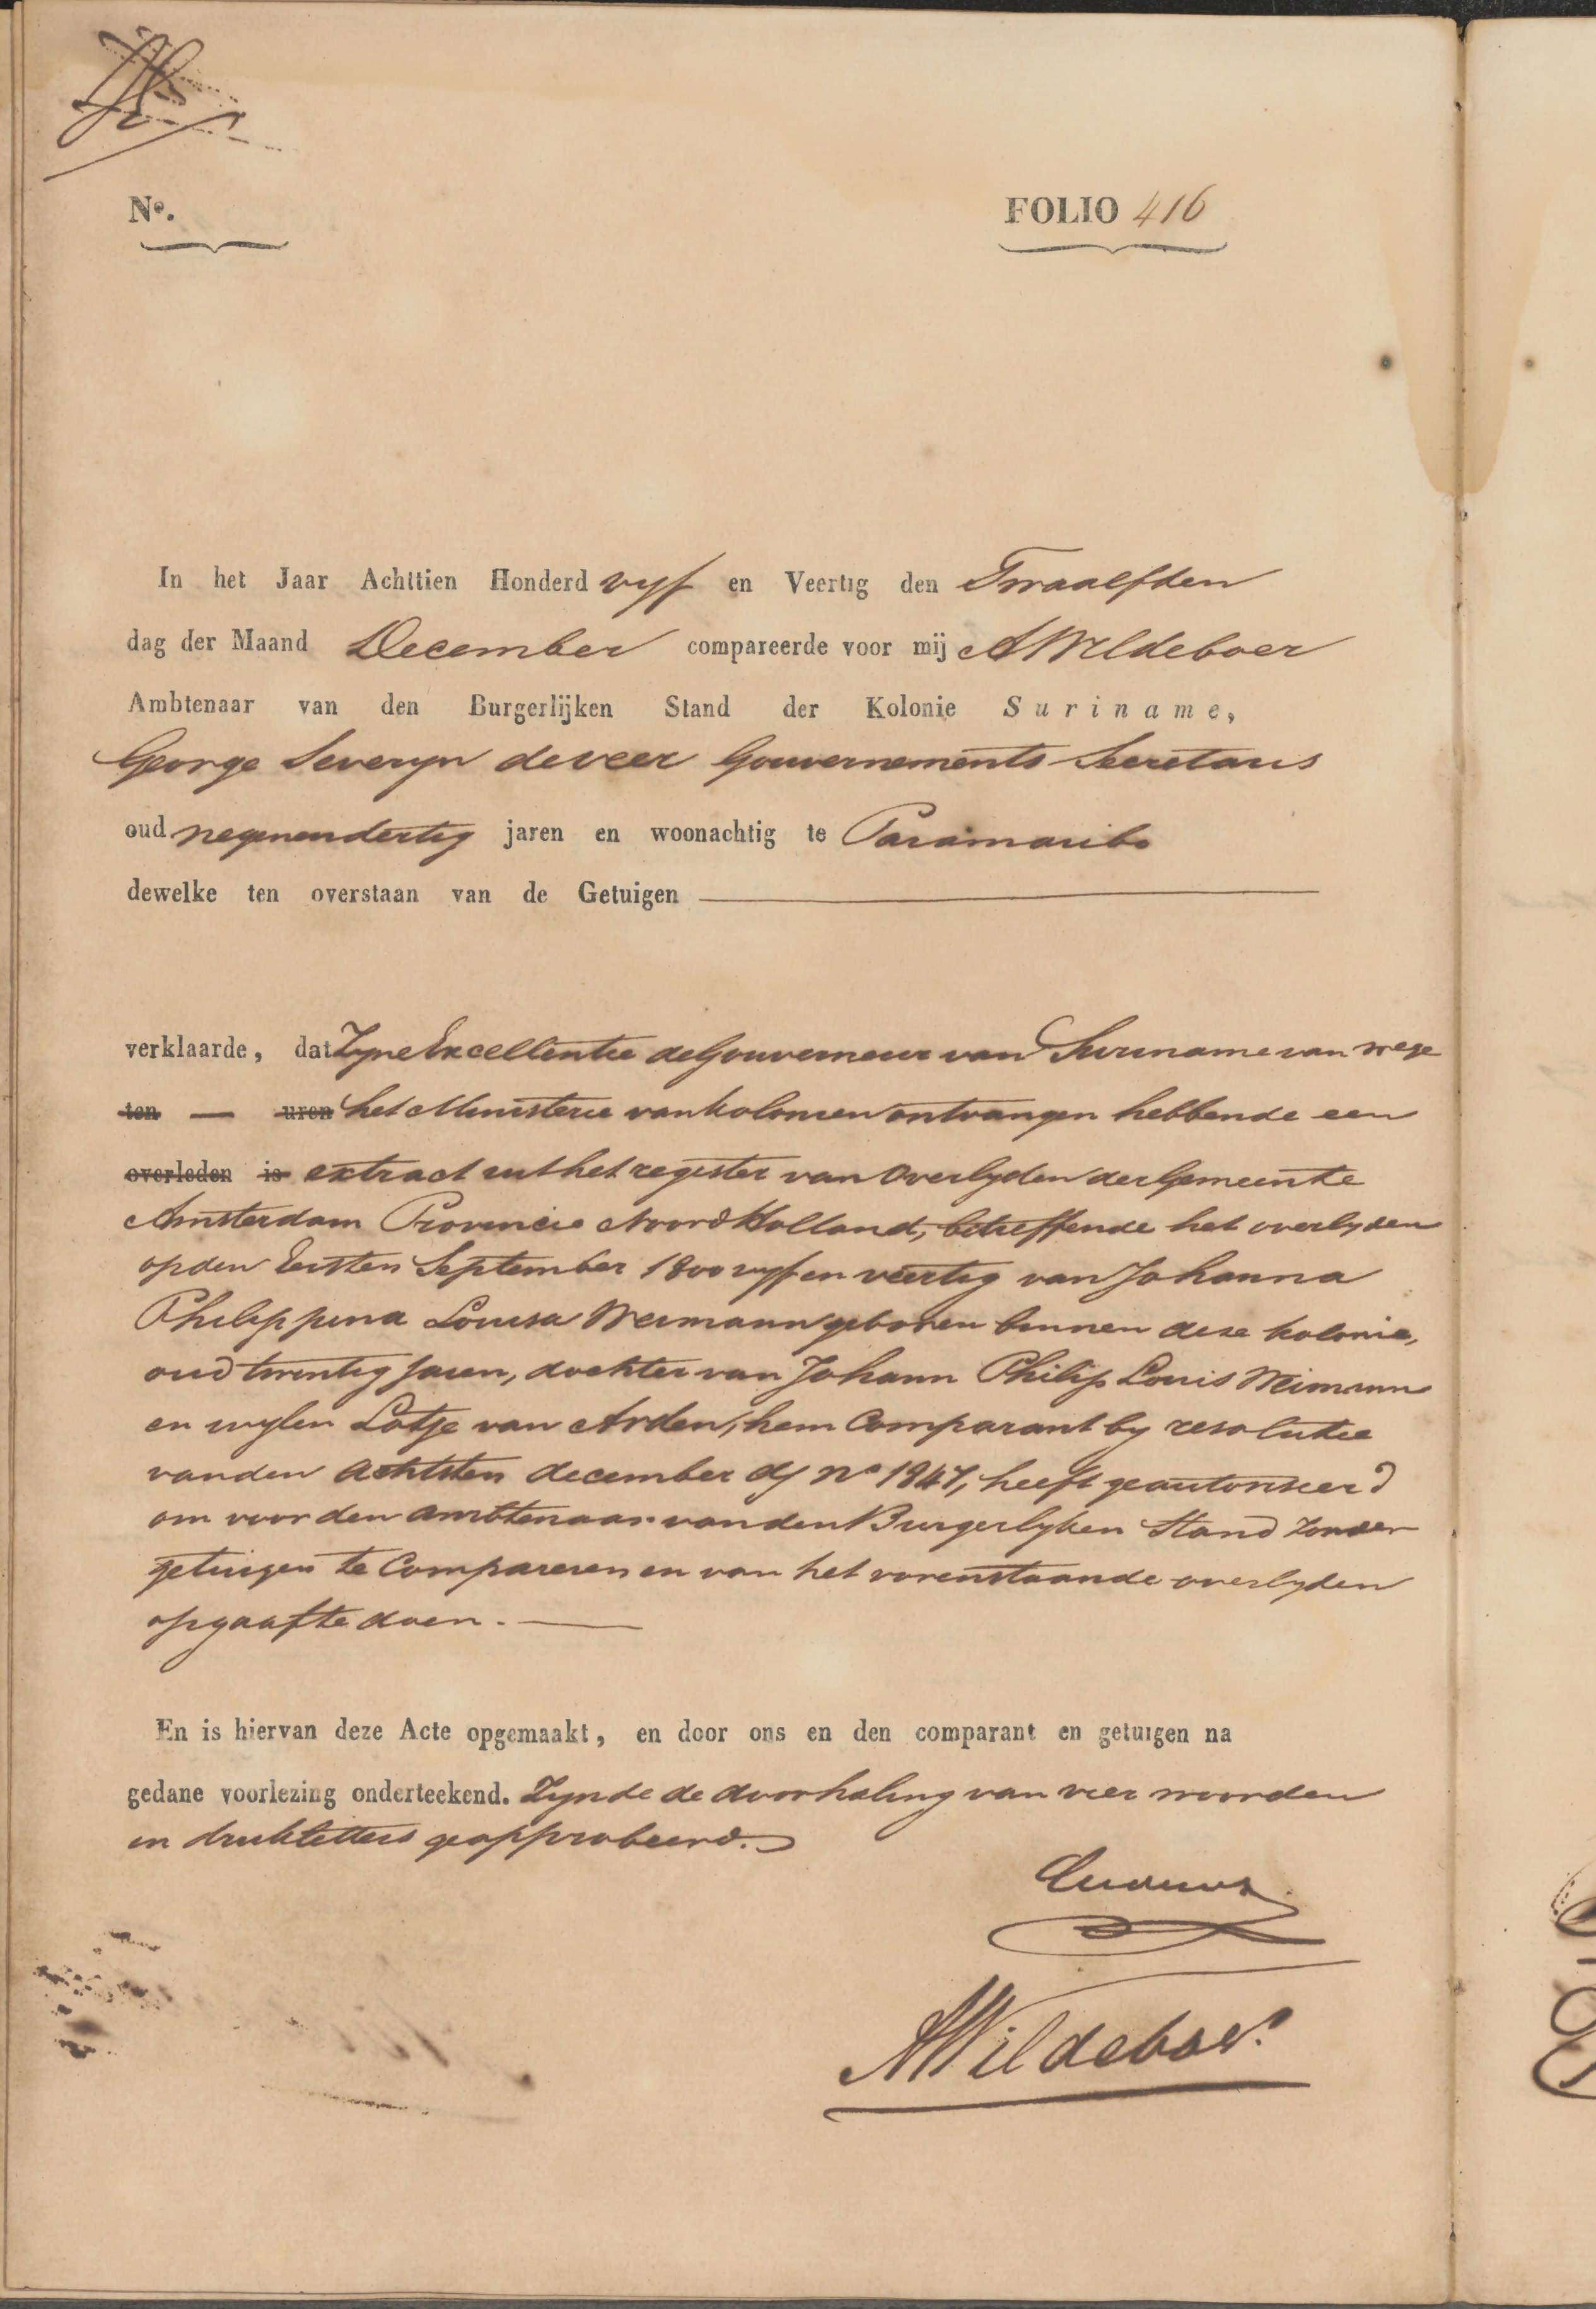 No.
FOLIO 416
In het Jaar Achttien Honderd vyf en Veertig den Twaalfden
dag der Maand December compareerde voor mij A Wildeboer
Ambtenaar van den Burgerlijken Stand der Kolonie Suriname,
George Severyn de veer Gouvernements Secretaris
oud negenendertig jaren en woonachtig te Paramaribo
dewelke ten overstaan van de Getuigen
verklaarde, dat Zyne Excellentie de Gouverneur van Suriname van wege
ten — uren het Ministerie van Kolonien ontvangen hebbende een
overleden is extract uit het register van Overlyden der Gemeente
Amsterdam Provincie Noord Holland, betreffende het overlyden
op den Eersten September 1800 vyf en veertig van Johanna
Philippina Louisa Weimann geboren binnen deze kolonie,
oud twintig Jaren, dochter van Johann Philip Louis Weimann
en wylen Lotje van Arden, hem Comparant by resolutie
van den achtsten december dj no 1847, heeft geautoriseerd
om voor den ambtenaar van den Burgerlyken Stand zonder
getuigen te Compareren en van het vorenstaande overlyden
opgaaf te doen.
En is hiervan deze Acte opgemaakt, en door ons en den comparant en getuigen na
gedane voorlezing onderteekend. Zynde de doorhaling van vier woorden
in drukletters geapprobeerd.
AWildeboer